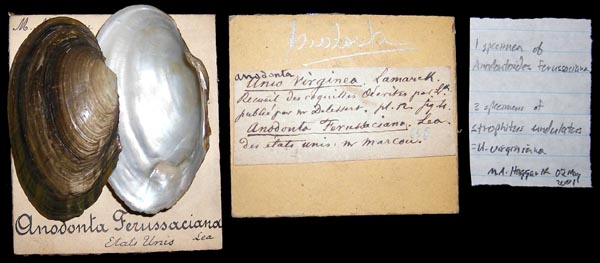 M.
Anodonta Ferussaciana
Etats Unis Lea
Anodonta
anodonta
Unio Virginea. Lamarck.
Recueil des coquilles Décrites par Lk
publié par mr Delessert. pl. 12. fig. 4.
Anodonta Ferussaciana. Lea.
des états unis. mr marcou.
1 specimen of
Anodontoides ferussacianus
2 specimens of
Strophitus undulatus
=U. virginiana
M.A. Hoggarth 02 May
2001